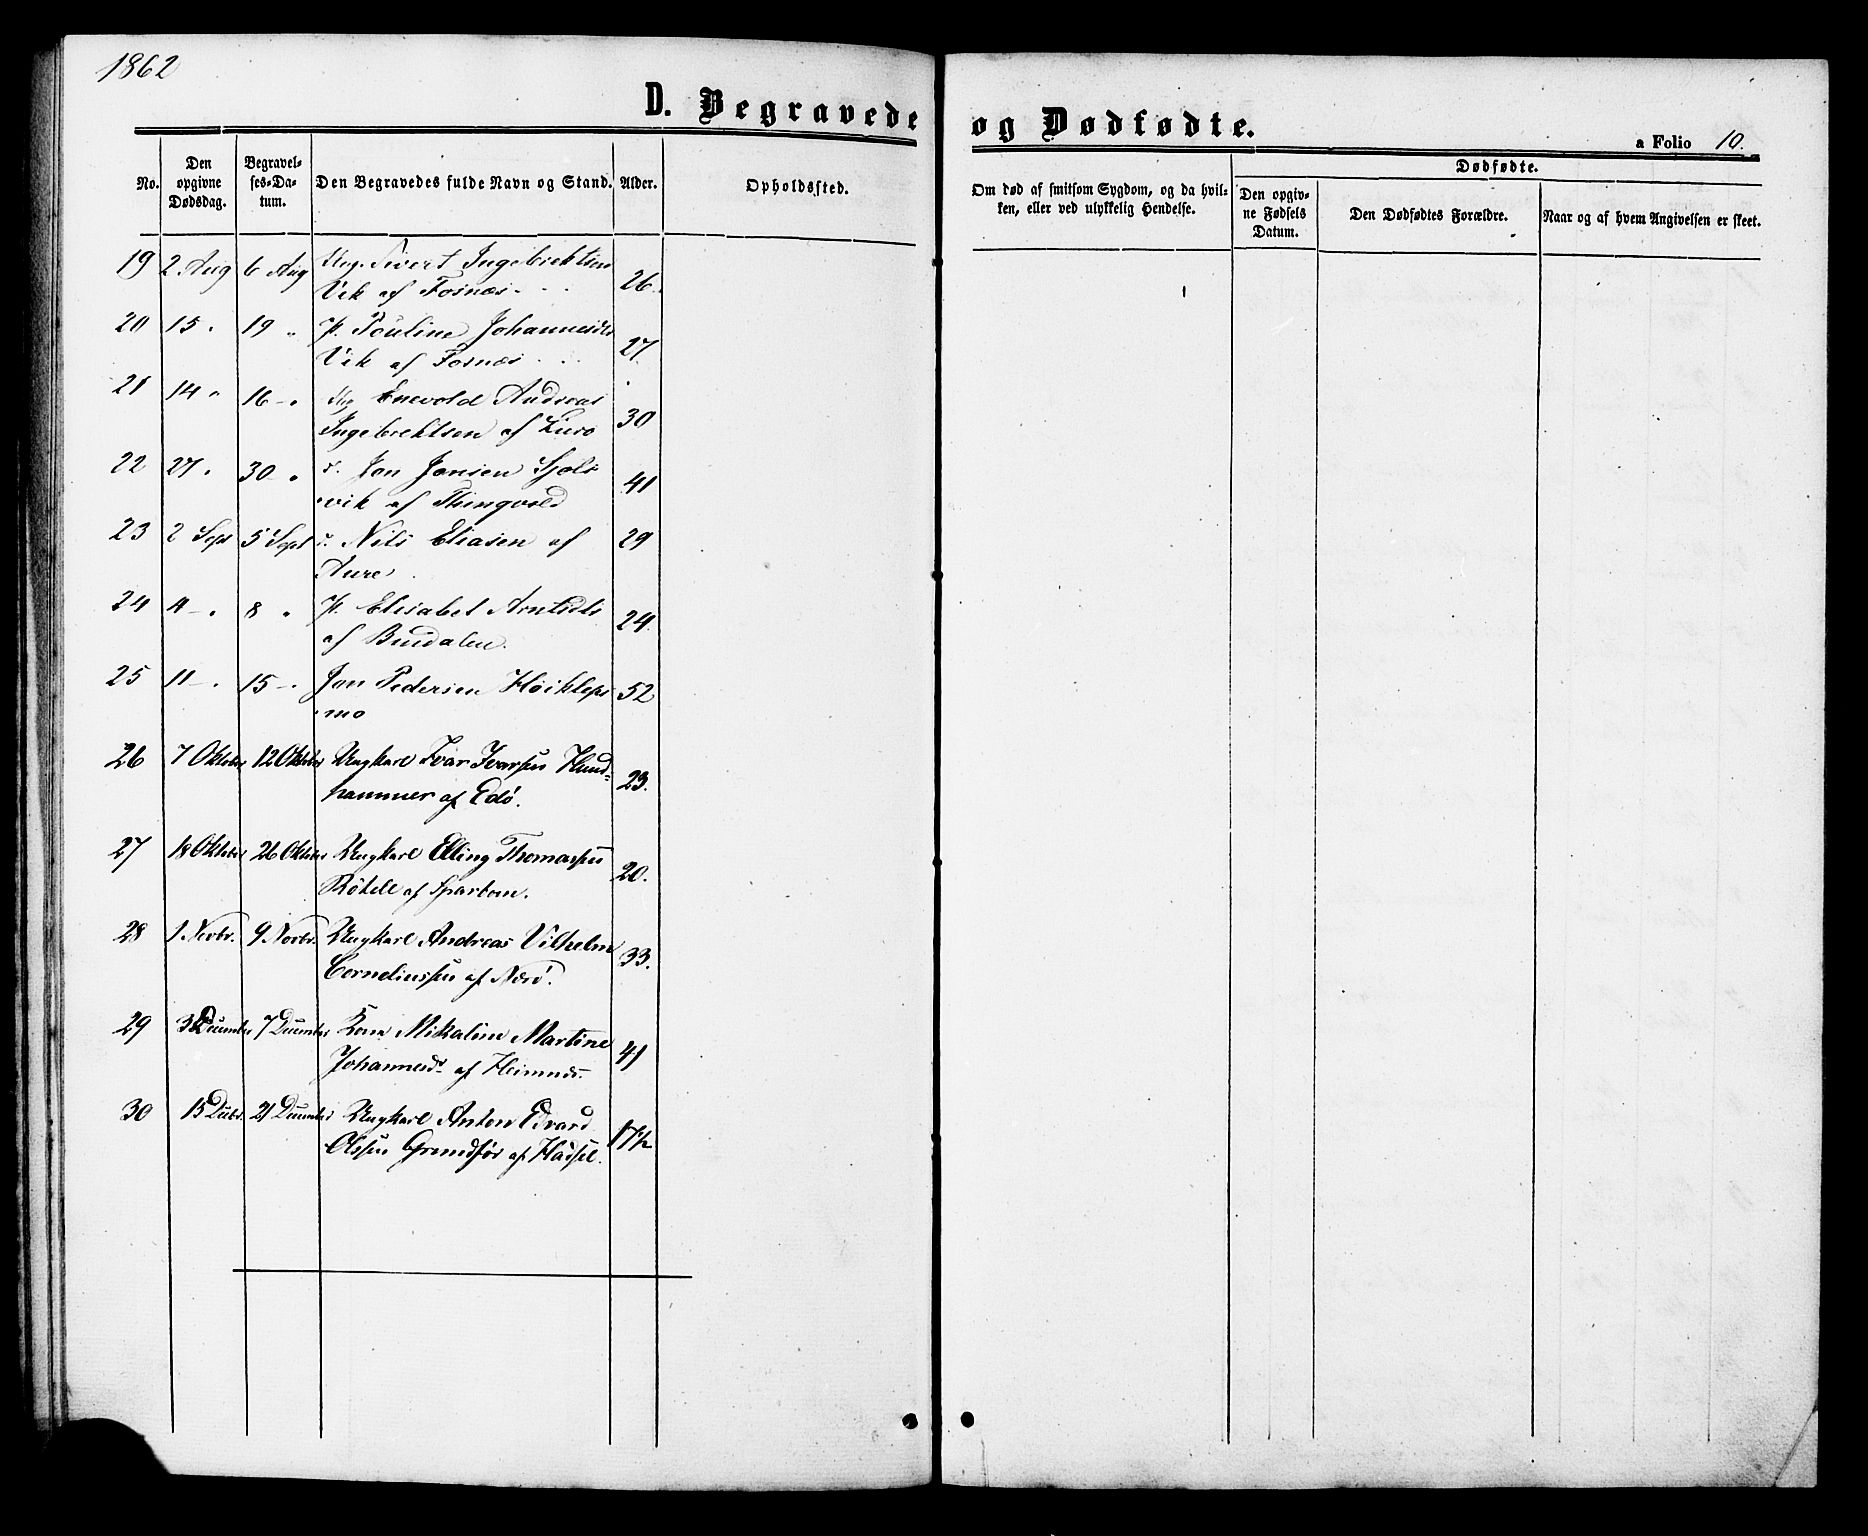 1862
D. Begravede og Dødfødte.
a Folio 10.
No.
Den opgivne Dødsdag.
Begravel-ses-Da-tum.
Den Begravedes fulde Navn og Stand.
Alder.
Opholdssted.
Om død af smitsom Sygdom, og da hvil-
ken, eller ved ulykkelig Hendelse.
Dødfødte.
Den opgiv-ne Fødsels Datum.
Den Dødfødtes Forældre.
Naar og af hvem Angivelsen er skeet.
19 2 Aug 6 Aug Sivert Ingebrektsen
Vik af Fosnæs 26.
20 15 " 19 " P. Pauline Johannesdtr
Vik af Fosnæs 27.
21 14 " 16 - " Enevold Andreas
Ingebrektsen af 30
22 27 " 30 - " Jon Jonsen Sjøls
vik af Thingvold 41
23 2 Sept 5 Sept Nils Eliasen af 29
Aure
24 4 - " 8 " P. Elisabet Arntsdtr
af Bindalen. 24.
25 11 - " 15 - " Jon Pedersen 52
mo
26 7 Oktober 12 Oktober Ungkarl Ivar Ivarsen Hund=
hammer af Edö. 23.
27 18 Oktober 26 Oktober Ungkarl Elling Thomassen
af Sparbom. 20.
28 1 Novbr. 9 Novbr. Ungkarl Andreas Vilhelm
Corneliussen af Nærö. 33.
29 3 December 7 December Kone Mikaline Martine
Johannesdr af Heimnes. 41
30 15 Decbr. 21 December Ungkarl Anton Edvard
Olssen Grundför af Hadsel. 17½